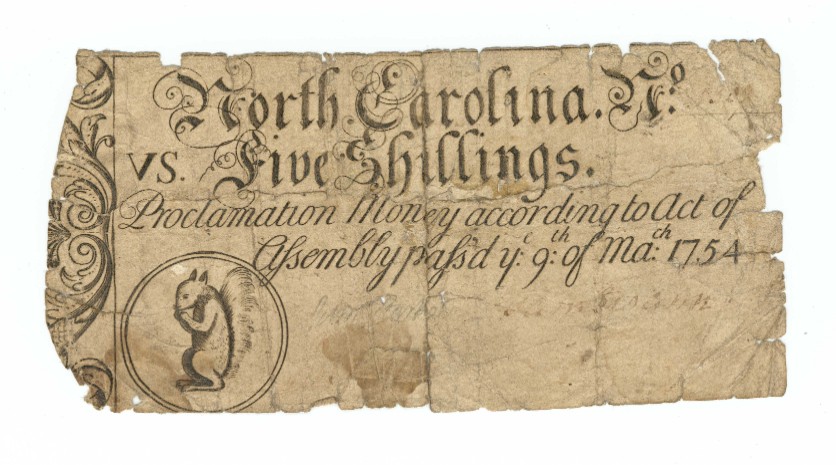 North Carolina. No.
VS. Five Shillings.
Proclamation Money according to Act of
Assembly pass'd ye. 9th: of Mach: 1754